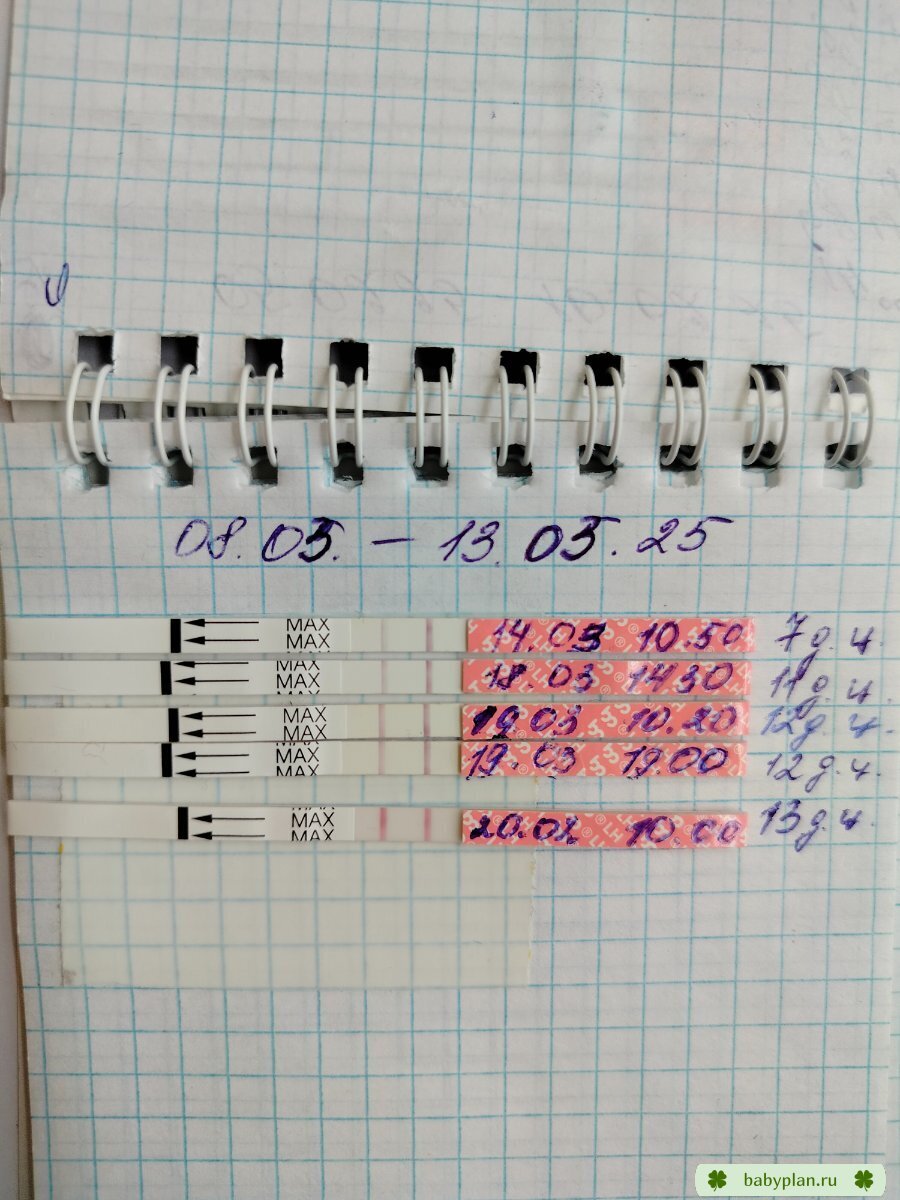 08.03. – 13.03.25
MAX
MAX
14.03 10.50 7 д.ц.
MAX
MAX
MAX
18.03 1430 11 д.ц.
MAX
MAX
19.03 10.20 12 д.ц.
MAX
MAX
MAX
19.03 19.00 12 д.ц.
MAX
MAX
MAX
20.03 10.00 13 д.ц.
babyplan.ru